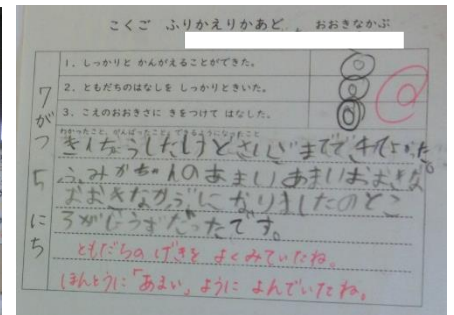 こくご ふりかえりかあど おおきなかぶ
1. しっかりと かんがえることができた。
2. ともだちのはなしを しっかりときいた。
3. こえのおおきさに きをつけて はなした。
7がつ5にち
わかったこと、がんばったこと、できるようになったこと
きんちょうしたけどさいごまでできてよかった。
ふみかちゃんのあまいあまいおおきな
おおきなかぶになりましたのとこ
ろがじょうずだったです。
ともだちの げきを よくみていたね。
ほんとうに「あまい」ように よんでいたね。